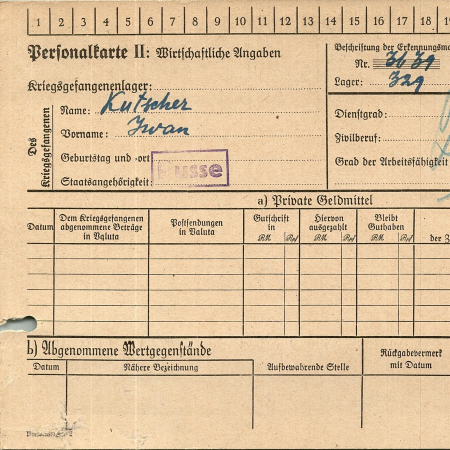 1 2 3 4 5 6 7 8 9 10 11 12 13 14 15 16 17 18 19
Personalkarte II: Wirtschaftliche Angaben
Beschriftung der Erkennungsma
Nr. 3639
Lager: 329
Kriegsgefangenenlager:
Des Kriegsgefangenen
Name: Kutscher
Vorname: Iwan
Geburtstag und -ort
Staatsangehörigkeit:
Russe
Dienstgrad:
Zivilberuf:
Grad der Arbeitsfähigkeit
a) Private Geldmittel
Datum
Dem Kriegsgefangenen abgenommene Beträge in Valuta
Postsendungen in Valuta
Gutschrift in
RM Rpf
Hiervon ausgezahlt
RM Rpf
Bleibt Guthaben
RM Rpf
der Z
b) Abgenommene Wertgegenstände
Datum
Nähere Bezeichnung
Aufbewahrende Stelle
Rückgabevermerk mit Datum